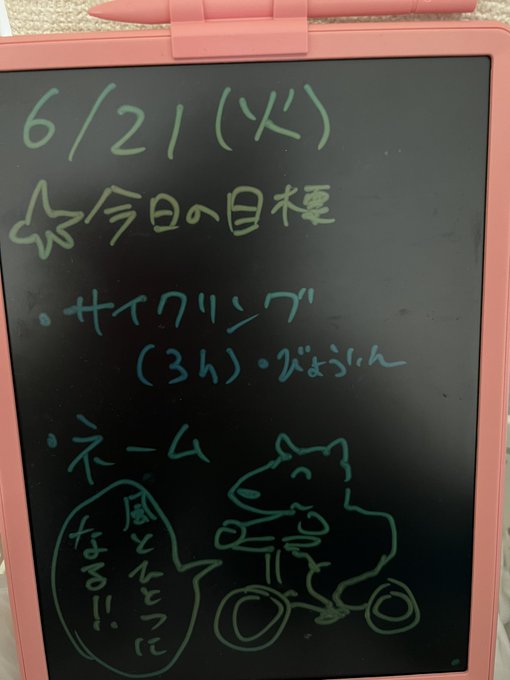 6/21(火)
☆今日の目標
・サイクリング
(3h)・びょういん
・ネーム
風とひとつに
なる!!